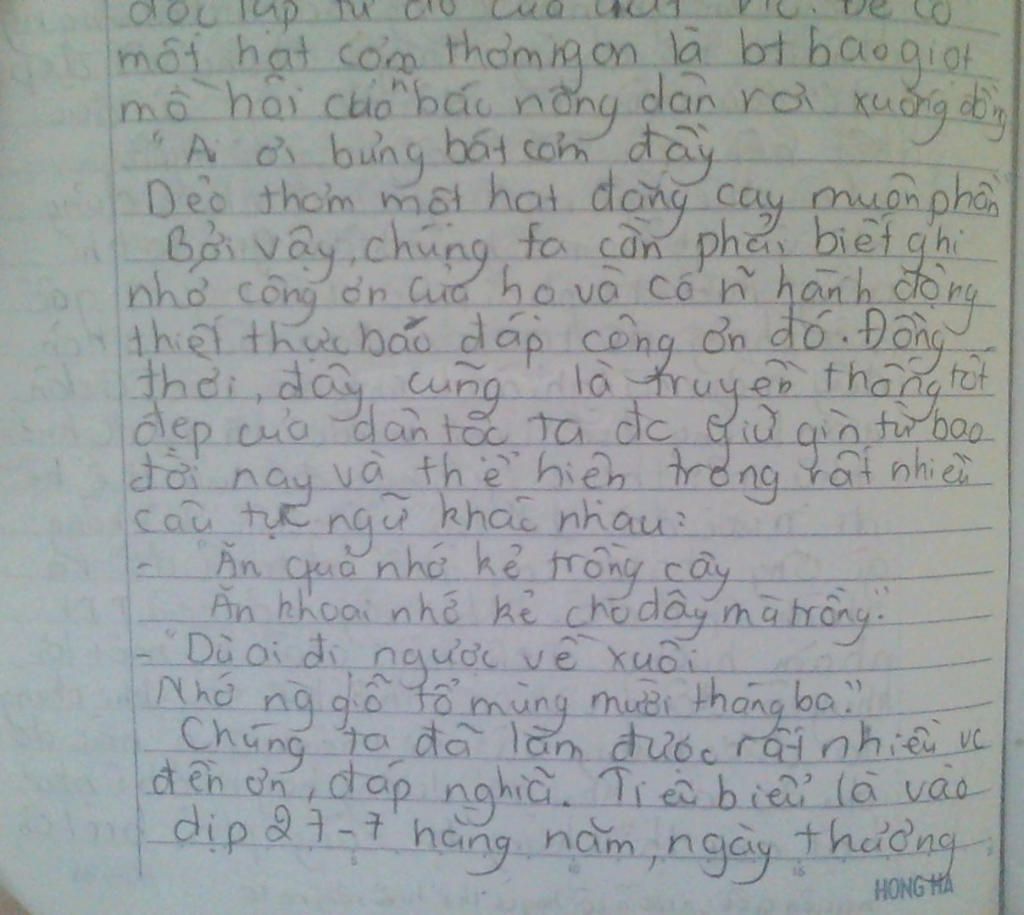 độc lập tự do của đất nc. Để có
một hạt cơm thơm ngon là bt bao giọt
mồ hôi của n~ bác nông dân rơi xuống đồng
"Ai ơi bưng bát cơm đầy
Dẻo thơm một hạt đắng cay muôn phần
Bởi vậy, chúng ta cần phải biết ghi
nhớ công ơn của họ và có n~ hành động
thiết thực báo đáp công ơn đó. Đồng
thời, đây cũng là truyền thống tốt
đẹp của dân tộc ta đc giữ gìn từ bao
đời nay và thể hiện trong rất nhiều
câu tục ngữ khác nhau:
- "Ăn quả nhớ kẻ trồng cây
Ăn khoai nhớ kẻ cho dây mà trồng."
- "Dù ai đi ngược về xuôi
Nhớ ng giỗ tổ mùng mười tháng ba."
Chúng ta đã làm được rất nhiều vc
đền ơn, đáp nghĩa. Tiêu biểu là vào
dịp 27-7 hằng năm, ngày thương
HONG HA